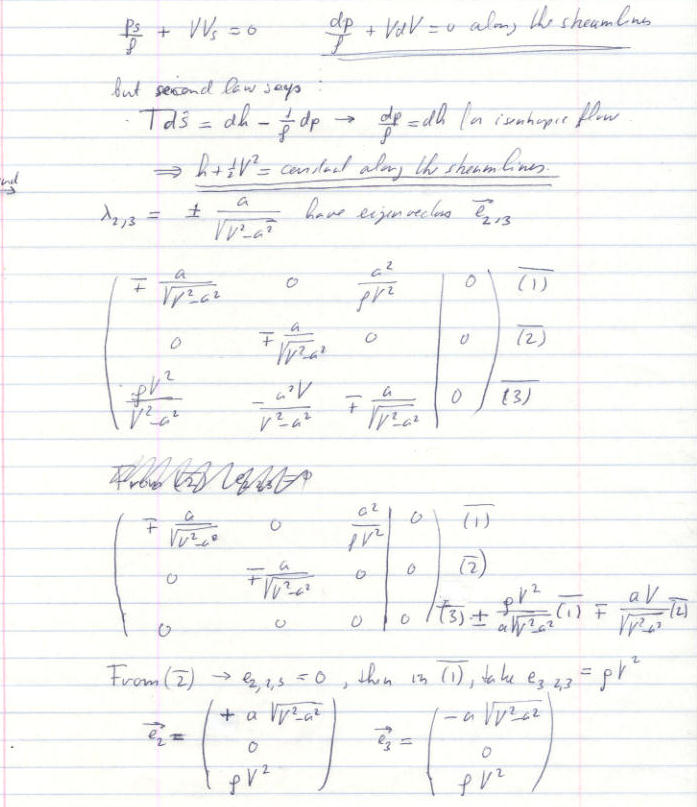 p_s/ρ + VV_s = 0    dp/ρ + VdV = 0 along the streamlines
but second law says :
Tds̄ = dh - 1/ρ dp → dp/ρ = dh for isentropic flow
⇒ h + ½V² = constant along the streamlines.
λ_{2,3} = ± a/√(V²-a²) have eigenvectors e⃗_{2,3}
( ∓ a/√(V²-a²)    0    a²/ρV² | 0 ) (1)
( 0    ∓ a/√(V²-a²)    0 | 0 ) (2)
( ρV²/(V²-a²)    - a²V/(V²-a²)    ∓ a/√(V²-a²) | 0 ) (3)
( ∓ a/√(V²-a²)    0    a²/ρV² | 0 ) (1)
( 0    ∓ a/√(V²-a²)    0 | 0 ) (2)
( 0    0    0 | 0 ) (3) ± ρV²/(a√(V²-a²)) (1) ∓ aV/√(V²-a²) (2)
From (2) → e_{2,2,3} = 0 , then in (1), take e_{3 2,3} = ρV²
e⃗_2 = ( + a √(V²-a²)    0    ρV² )    e⃗_3 = ( - a √(V²-a²)    0    ρV² )